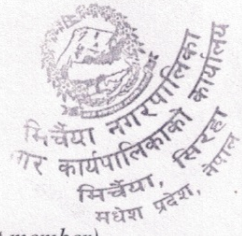 मिर्चैया नगरपालिका
गर कार्यपालिकाको कार्यालय
मिर्चैया, सिरहा
मधेश प्रदेश, नेपाल
member)